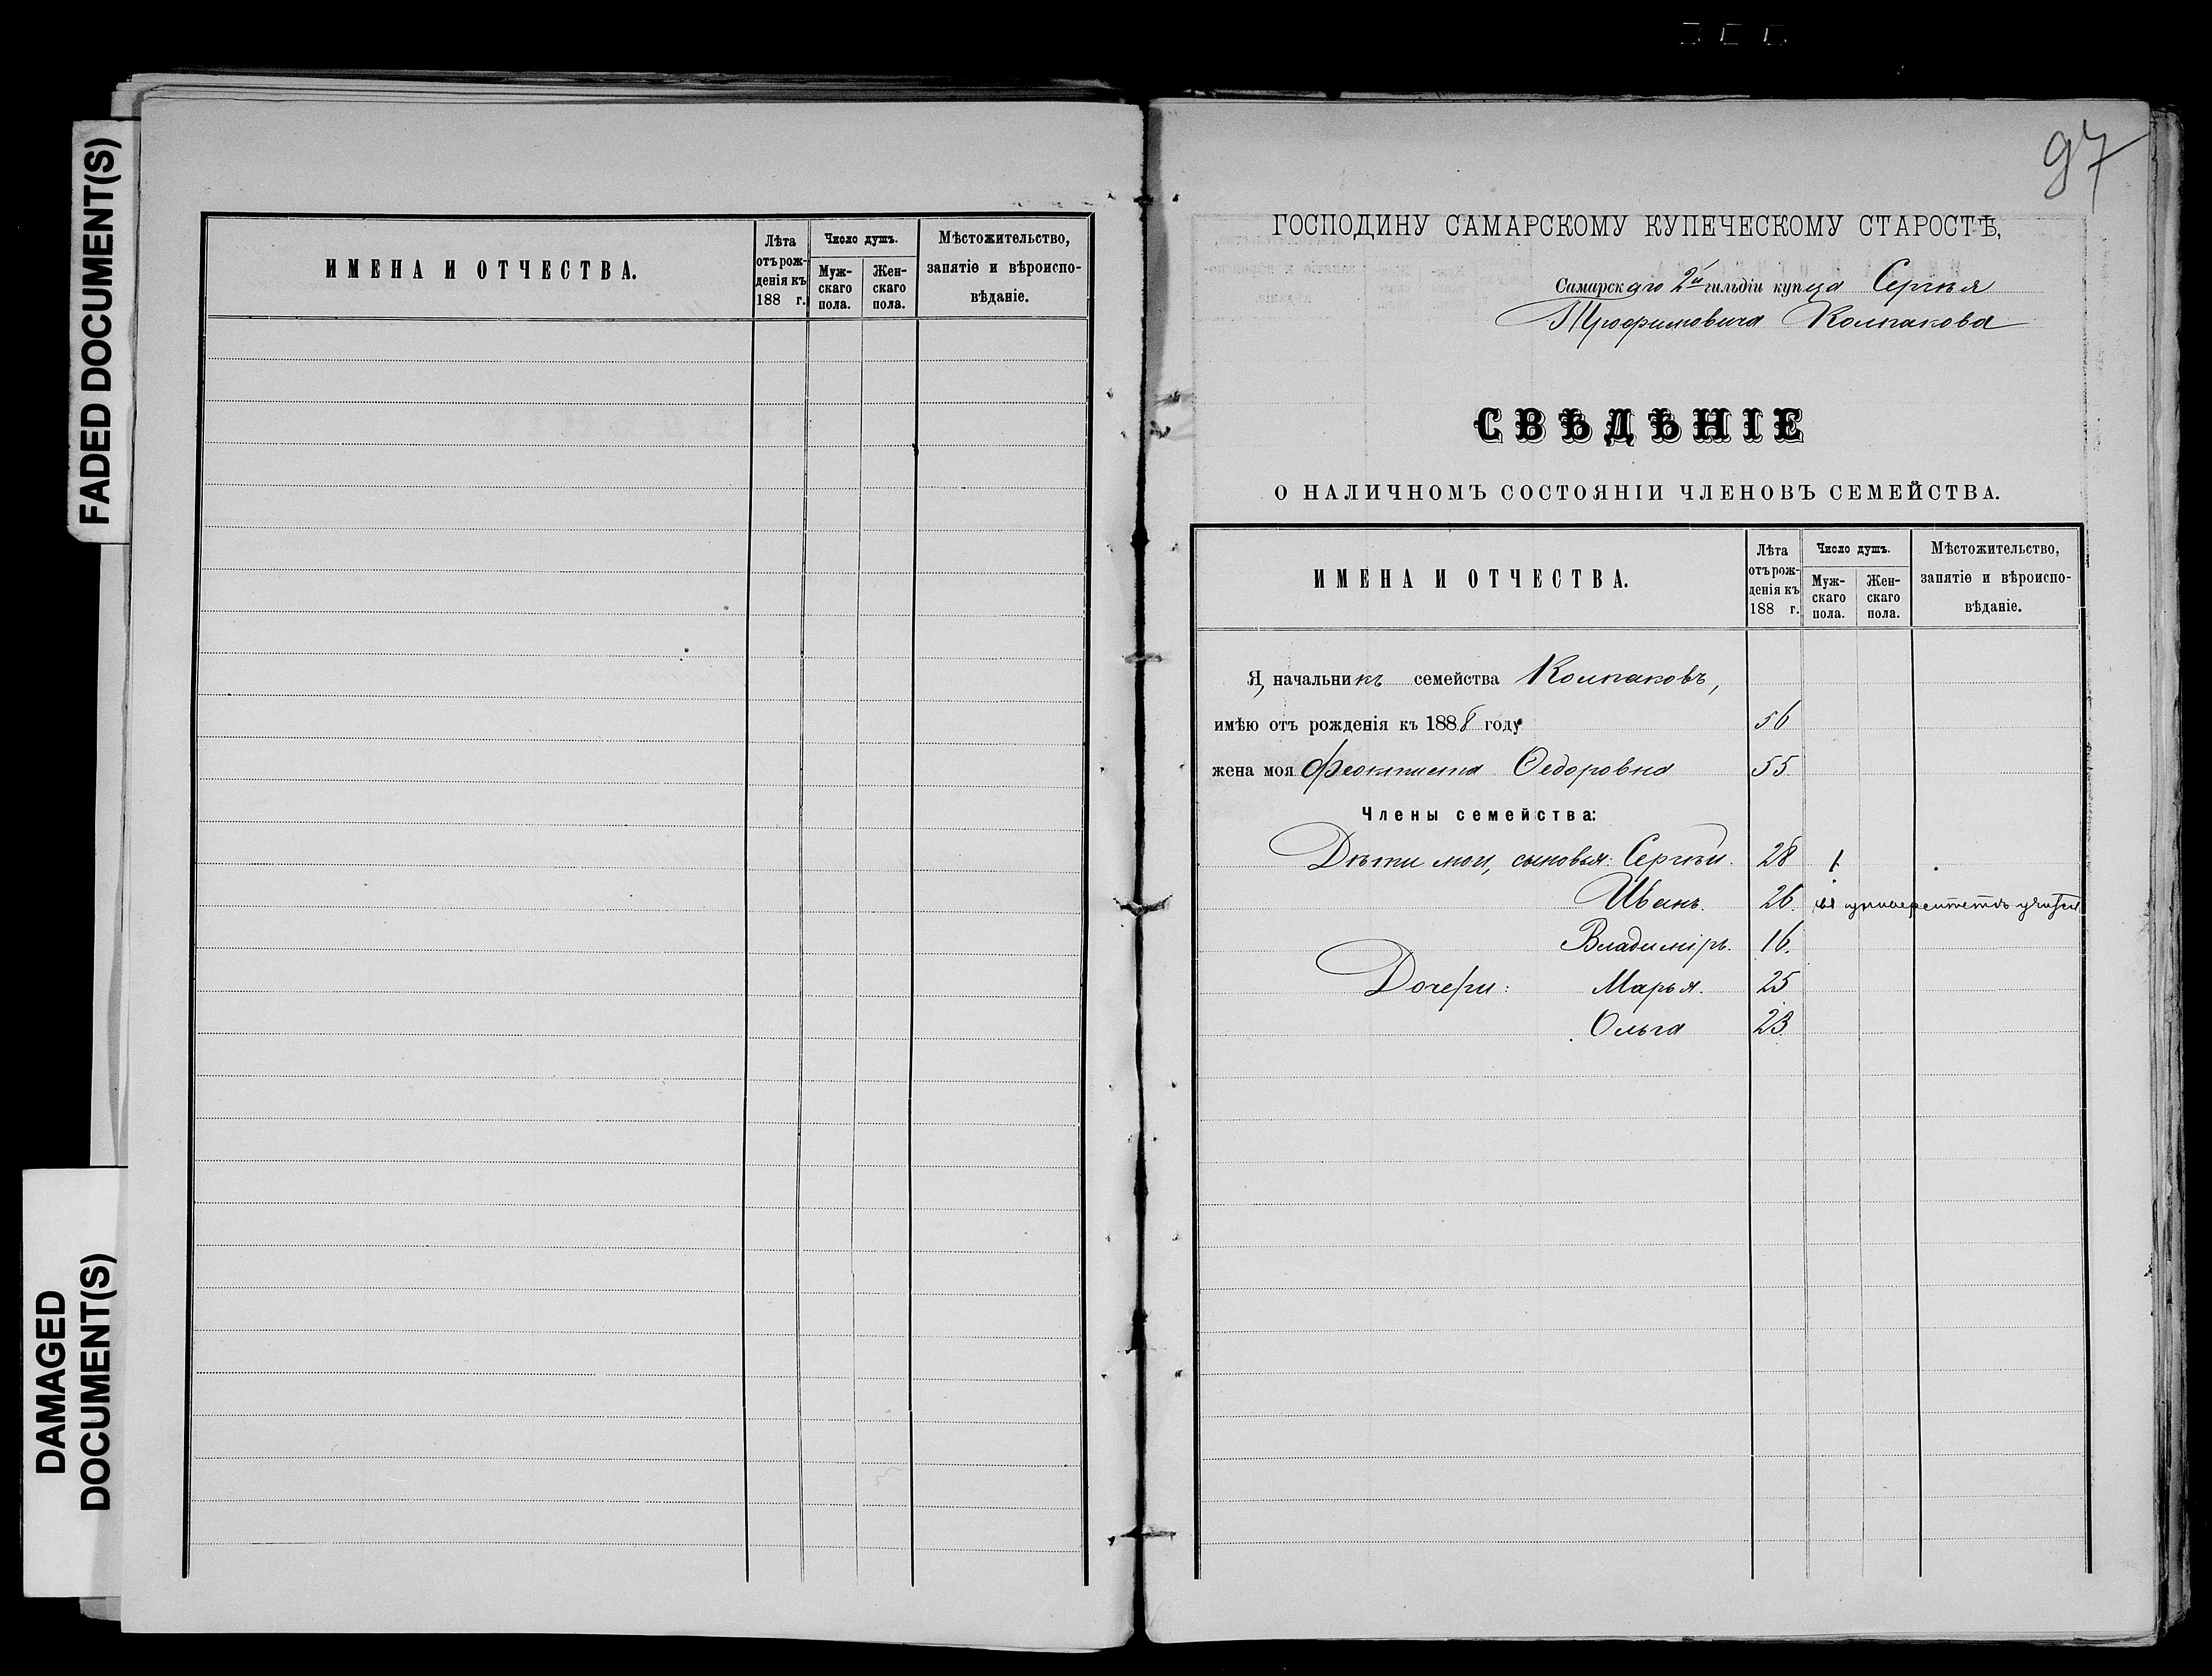 FADED DOCUMENT(S)
DAMAGED
DOCUMENT(S)
ИМЕНА И ОТЧЕСТВА.
Лѣта
отъ рож-
денія къ
188 г.
Число душъ.
Муж-
скаго
пола.
Жен-
скаго
пола.
Мѣстожительство,
занятіе и вѣроиспо-
вѣданіе.
97
ГОСПОДИНУ САМАРСКОМУ КУПЕЧЕСКОМУ СТАРОСТѢ,
Самарскаго 2й гильдіи купца Сергѣя
Трофимовича Колпакова
СВѢДѢНІЕ
О НАЛИЧНОМЪ СОСТОЯНІИ ЧЛЕНОВЪ СЕМЕЙСТВА.
ИМЕНА И ОТЧЕСТВА.
Лѣта
отъ рож-
денія къ
188 г.
Число душъ.
Муж-
скаго
пола.
Жен-
скаго
пола.
Мѣстожительство,
занятіе и вѣроиспо-
вѣданіе.
Я, начальникъ семейства Колпаковъ,
имѣю отъ рожденія къ 1888 году 56
жена моя Феоктиста Ѳедоровна 55
Члены семейства:
Дѣти мои, сыновья: Сергѣй. 28 1
Иванъ. 26. университетъ
Владиміръ. 16.
Дочери: Марья. 25
Ольга 23